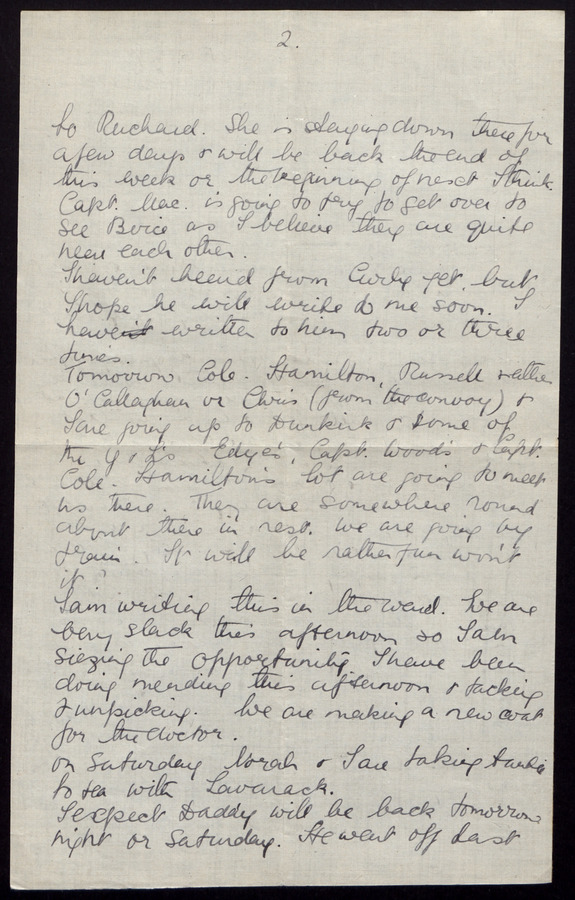 2.
to Richard. She is staying down there for
a few days & will be back the end of
this week or the beginning of next I think.
Capt. Mac. is going to try to get over to
see Boxie as I believe they are quite
near each other.
I haven't heard from Curly yet, but
I hope he will write to me soon. I
have written to him two or three
times.
Tomorrow Cole. Hamilton, Russell & either
O'Callaghan or Chris (from the convoy) &
I are going up to Dunkirk & some of
the Y & L's Edye's, Capt. Woods & Capt.
Cole. Hamilton's lot are going to meet
us there. They are somewhere round
about there in rest. We are going by
train. It will be rather fun won't
it?
I am writing this in the ward. We are
very slack this afternoon so I am
siezing the opportunity. I have been
doing mending this afternoon & tacking
& unpicking. We are making a new coat
for the doctor.
on Saturday Norah & I are taking Auntie
to tea with Lavarack.
I expect Daddy will be back tomorrow
night or Saturday. He went off last